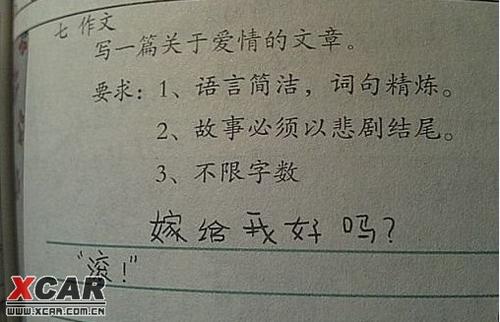 七 作文
写一篇关于爱情的文章。
要求：1、语言简洁，词句精炼。
2、故事必须以悲剧结尾。
3、不限字数
嫁给我好吗？
“滚！”
XCAR
WWW.XCAR.COM.CN